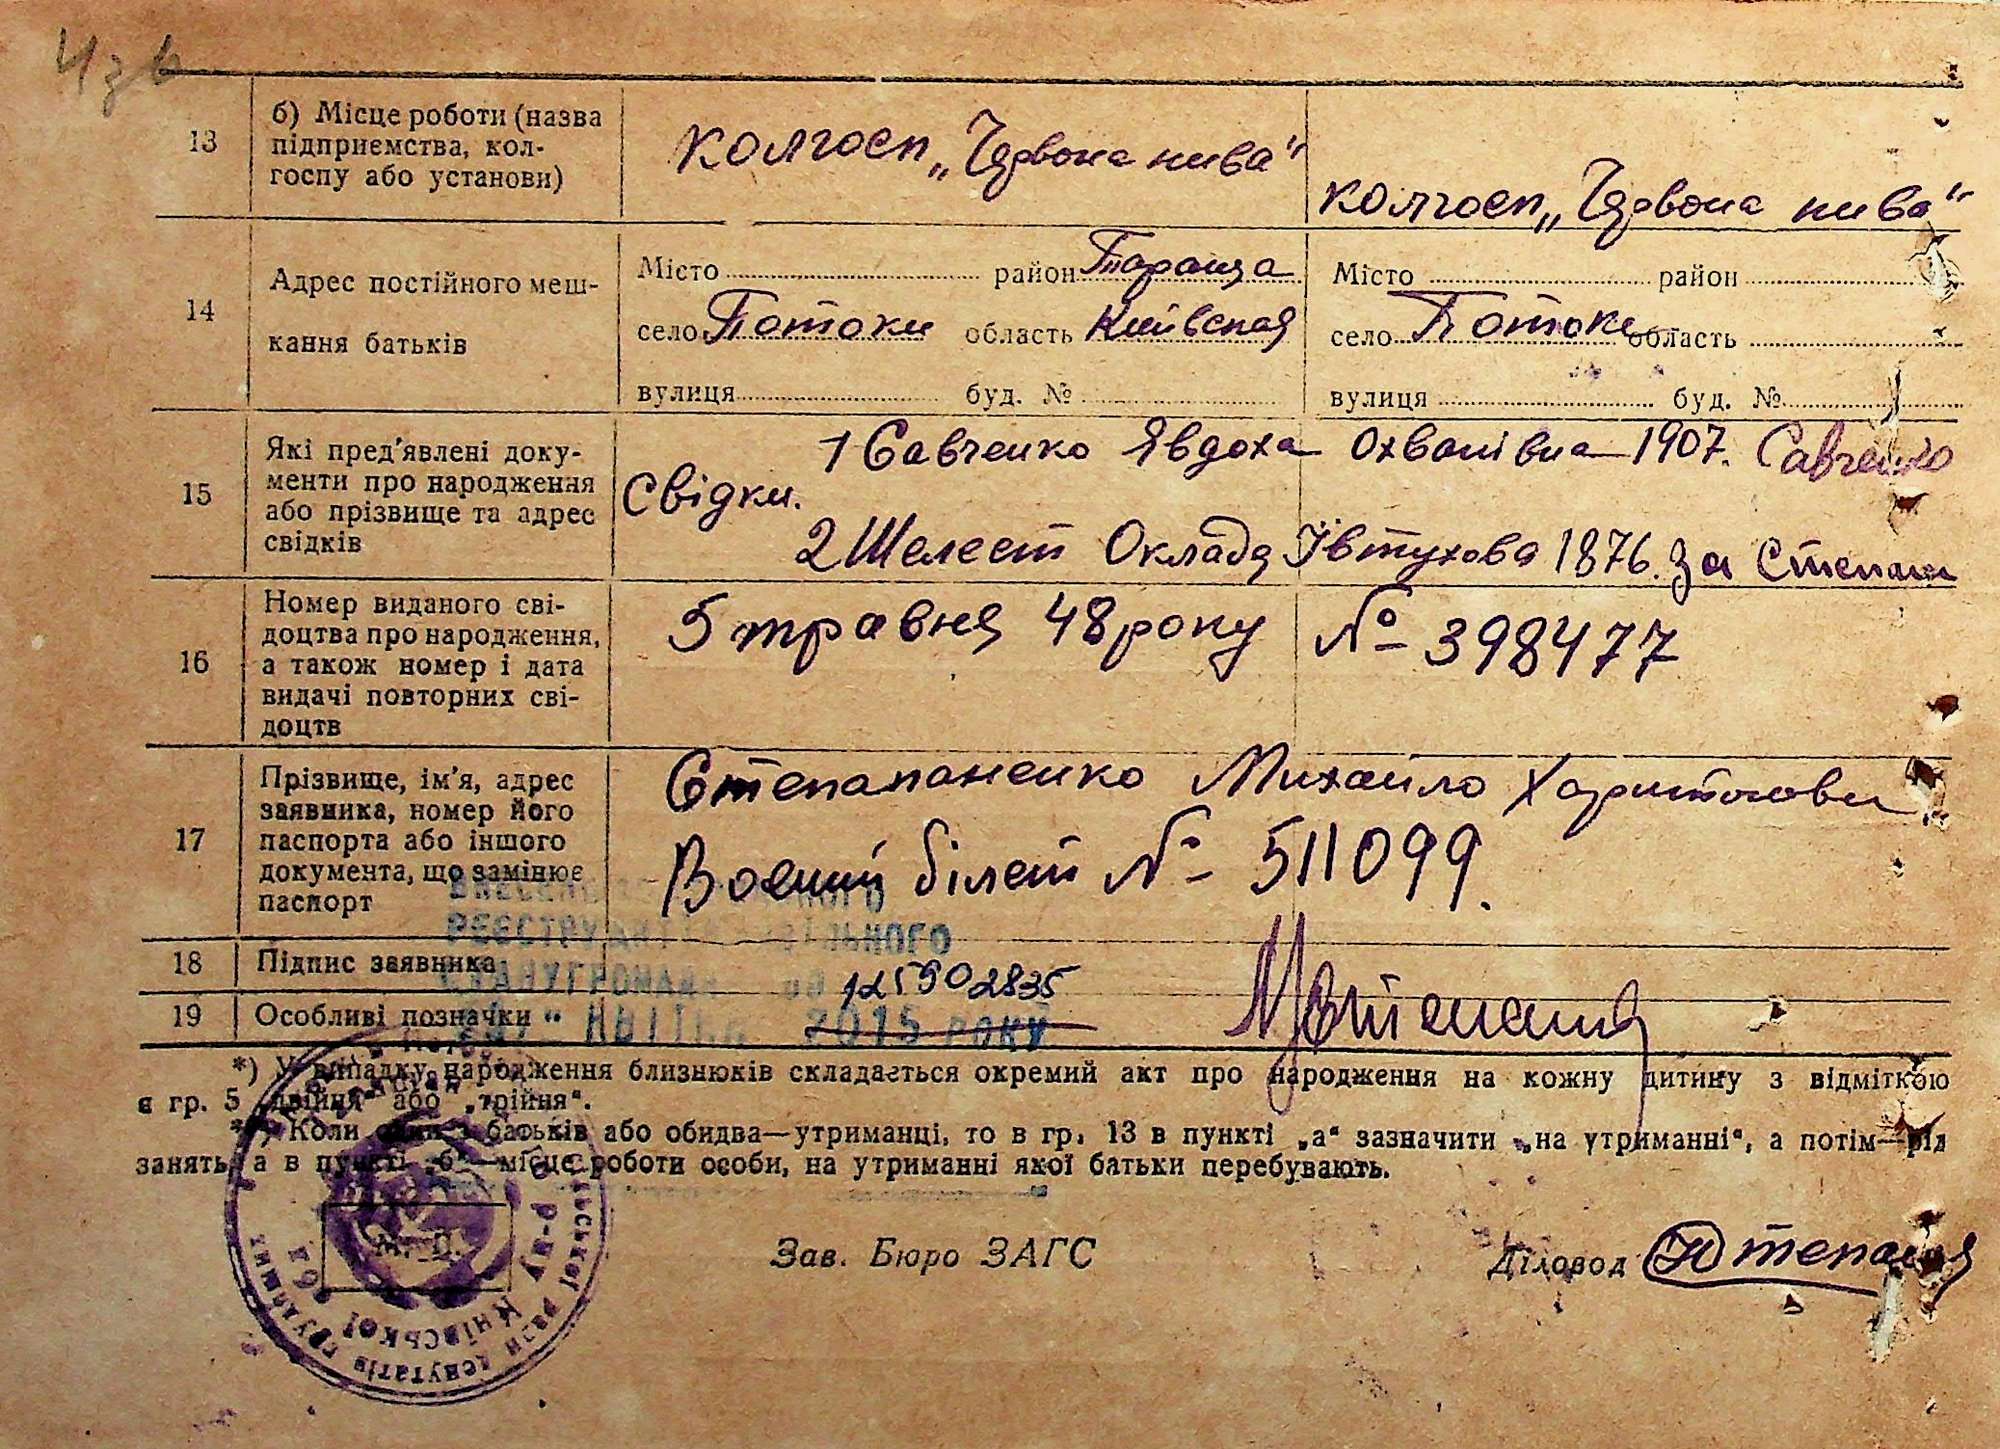 13 б) Місце роботи (назва колгосп „Червона нива“
підприємства, кол-
госпу або установи) колгосп „Червона нива“
14 Адрес постійного меш-
кання батьків
Місто район Тараща Місто район
село Потоки область Київская село Потоки область
вулиця буд. № вулиця буд. №
15 Які пред'явлені доку-
менти про народження
або прізвище та адрес
свідків
1 Савченко Явдоха Охванівна 1907. Савченко
Свідки.
2 Шелест Оклада Івтухова 1876. За Степан
16 Номер виданого сві-
доцтва про народження,
а також номер і дата
видачі повторних сві-
доцтв
5 травня 48 року № 398477
17 Прізвище, ім'я, адрес
заявника, номер його
паспорта або іншого
документа, що замінює
паспорт
Степапаненко Михайло Харитонови
Воєний білет № 511099.
РЕЄСТРУ АКТІВ ЦИВІЛЬНОГО
СТАНУ ГРОМАДЯН
18 Підпис заявника
125902835
19 Особливі позначки
КВІТНЯ 2015 РОКУ
*) У випадку народження близнюків складається окремий акт про народження на кожну дитину з відміткою
в гр. 5 „двійня“ або „трійня“.
**) Коли один з батьків або обидва—утриманці, то в гр. 13 в пункті „а“ зазначити „на утриманні“, а потім—рід
занять, а в пункті „б“—місце роботи особи, на утриманні якої батьки перебувають.
М. П.
р-ну Київської
ради депутатів трудящих
Зав. Бюро ЗАГС
Діловод